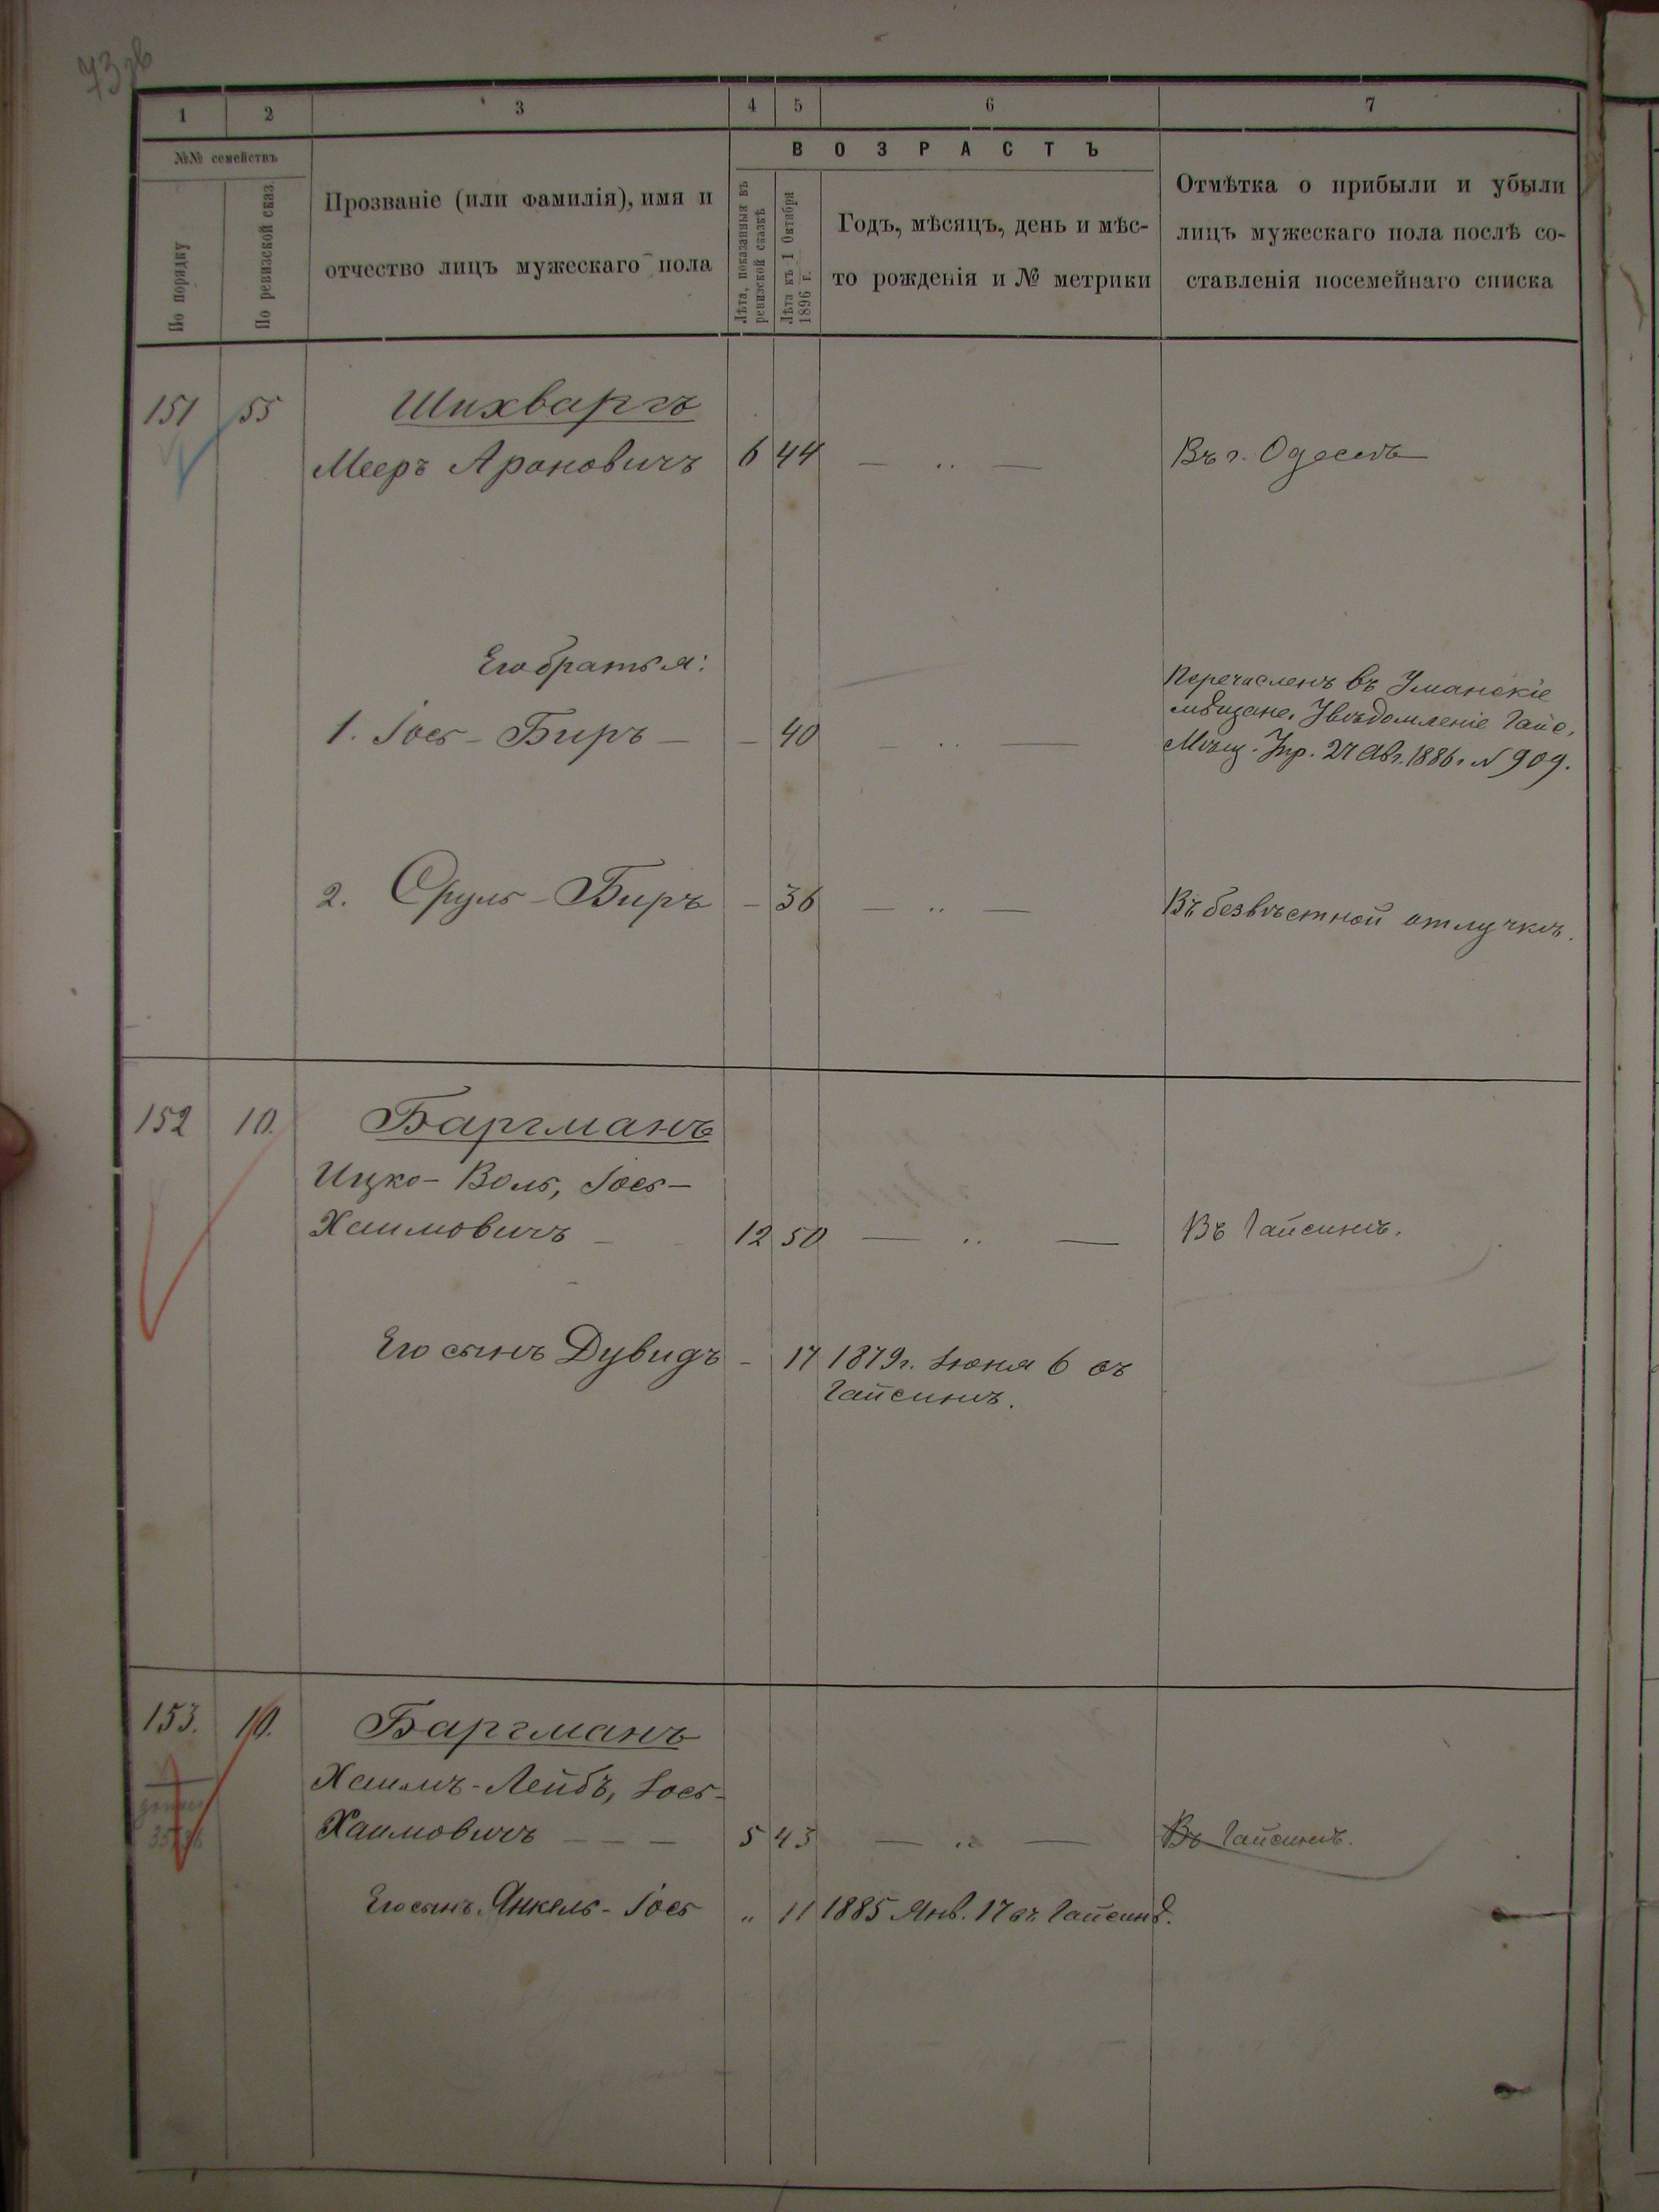 73 об
1 2 3 4 5 6 7
№№ семействъ
По порядку
По ревизской сказ.
Прозваніе (или фамилія), имя и
отчество лицъ мужескаго пола
ВОЗРАСТЪ
Лѣта, показанныя въ
ревизской сказкѣ
Лѣта къ 1 Октября
1896 г.
Годъ, мѣсяцъ, день и мѣс-
то рожденія и № метрики
Отмѣтка о прибыли и убыли
лицъ мужескаго пола послѣ со-
ставленія посемейнаго списка
151 55 Шихваргъ
Мееръ Ароновичъ 6 44 — „ — Въ г. Одессѣ
Его братья:
1. Іось-Биръ — — 40 — „ —
Перечисленъ въ Уманскіе
мѣщане. Увѣдомленіе Гайс.
Мѣщ. Упр. 27 Авг. 1886 г. № 909.
2. Сруль-Биръ — 36 — „ — Въ безвѣстной отлучкѣ.
152 10. Баргманъ
Ицко-Воль, Іось-
Хаимовичъ — 12 50 — „ — Въ Гайсинѣ.
Его сынъ Дувидъ — 17 1879 г. Іюня 6 въ
Гайсинѣ.
153. 10. Баргманъ
Хаимъ-Лейбъ, Іось-
Хаимовичъ — — — 5 43 — „ — Въ Гайсинѣ.
Его сынъ Янкель-Іось „ 11 1885 Янв. 17 въ Гайсинѣ.